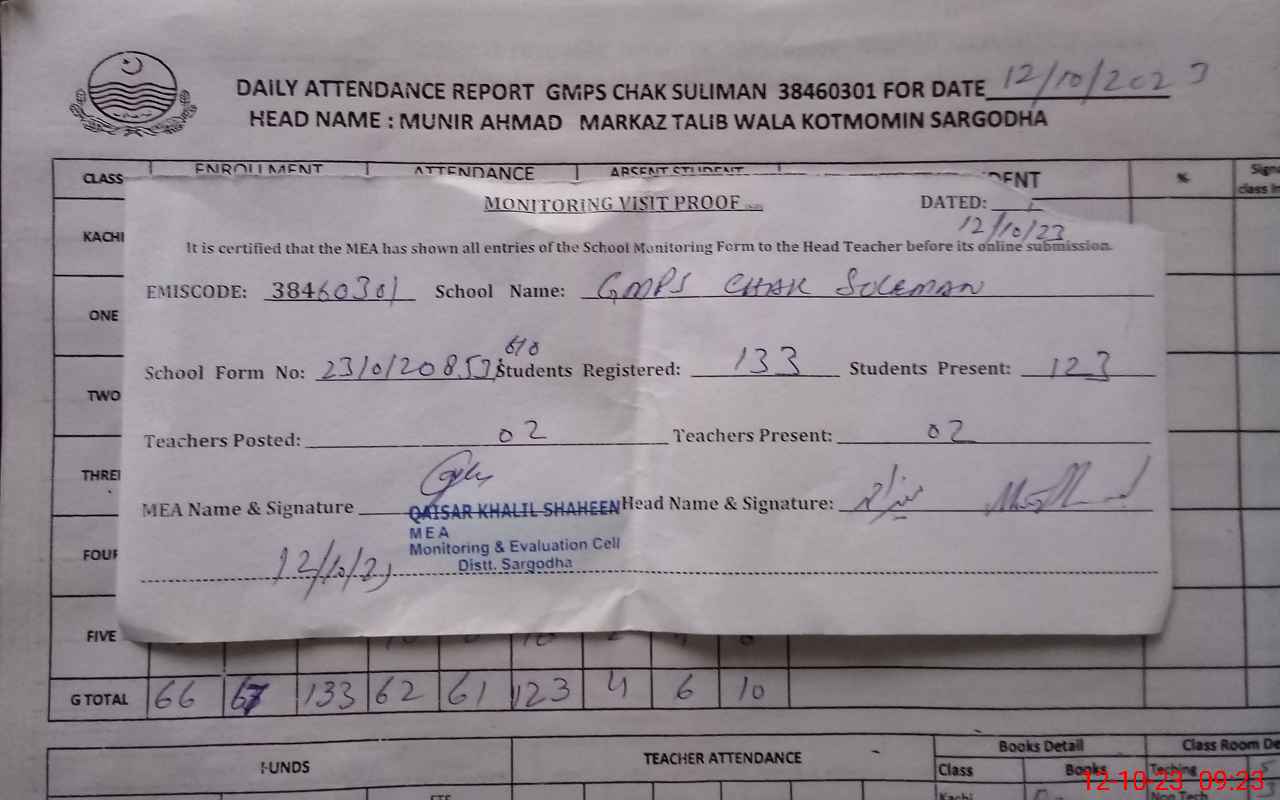 DAILY ATTENDANCE REPORT GMPS CHAK SULIMAN 38460301 FOR DATE 12/10/2023
HEAD NAME : MUNIR AHMAD MARKAZ TALIB WALA KOTMOMIN SARGODHA
CLASS ENROLLMENT ATTENDANCE ABSENT STUDENT %
MONITORING VISIT PROOF DATED: 12/10/23
It is certified that the MEA has shown all entries of the School Monitoring Form to the Head Teacher before its online submission.
EMISCODE: 38460301 School Name: GMPS CHAK SULEMAN
School Form No: Students Registered: 133 Students Present: 123
Teachers Posted: 02 Teachers Present: 02
MEA Name & Signature Head Name & Signature:
QAISAR KHALIL SHAHEEN
MEA
Monitoring & Evaluation Cell
Distt. Sargodha
12/10/23
KACHI
ONE
TWO
FIVE
G TOTAL 66 67 133 62 61 123 4 6 10
FUNDS TEACHER ATTENDANCE Books Detail Class Room
Class Books Teching 5
Kachi Non Tech
12-10-23 09:23